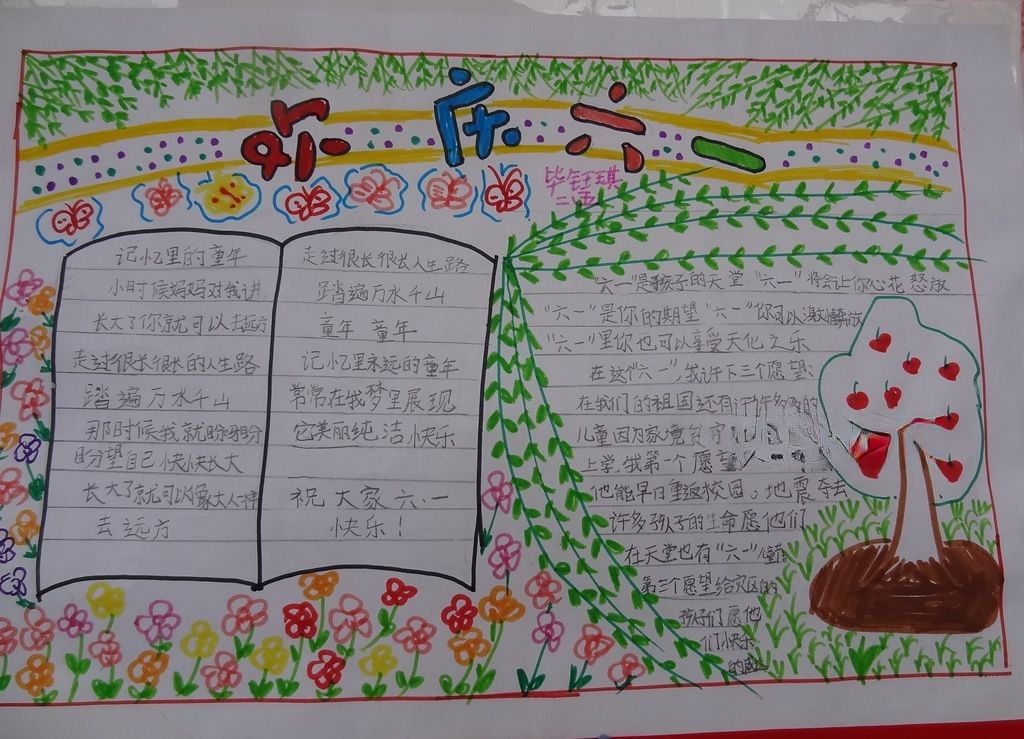 欢庆六一
毕钰琪
记忆里的童年
小时候妈妈对我讲
长大了你就可以去远方
走过很长很长的人生路
踏遍万水千山
那时候我就盼呀盼
盼望自己快快长大
长大了就可以像大人一样
去远方
走过很长很长人生路
踏遍万水千山
童年 童年
记忆里永远的童年
常常在我梦里展现
它美丽纯洁快乐
祝大家六一
快乐!
"六一"是孩子的天堂."六一"将会让你心花怒放
"六一"是你的期望"六一"你可以激情释放
"六一"里你也可以享受天伦之乐
在这个六一",我许下三个愿望:
在我们的祖国还有许许多多的
儿童因为家境贫穷
上学,我第一个愿望
他能早日重返校园。地震夺去
许多孩子的生命愿他们
在天堂也有"六一"儿童
第三个愿望给灾区的
孩子们愿他
们快乐